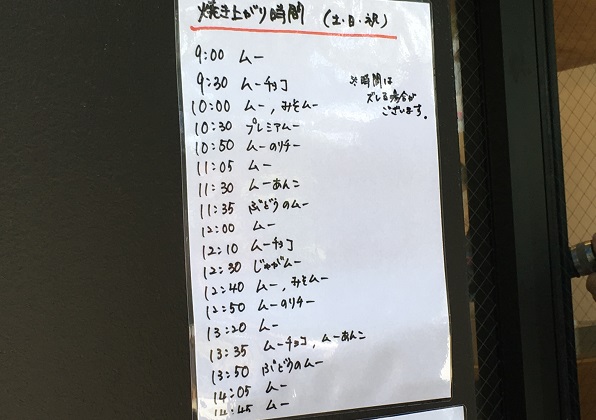 焼き上がり時間 (土・日・祝)
9:00 ムー
9:30 ムーチョコ
※時間は
ズレる場合が
ございます。
10:00 ムー, みそムー
10:30 プレミアムー
10:50 ムーのリチー
11:05 ムー
11:30 ムーあんこ
11:35 ぶどうのムー
12:00 ムー
12:10 ムーチョコ
12:30 じゃがムー
12:40 ムー, みそムー
12:50 ムーのリチー
13:20 ムー
13:35 ムーチョコ, ムーあんこ
13:50 ぶどうのムー
14:05 ムー
14:45 ムー